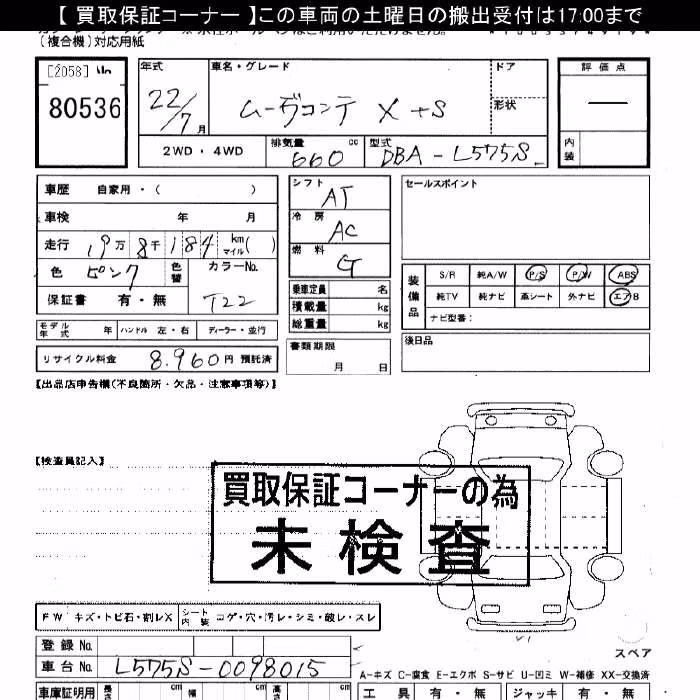 【 買取保証コーナー 】この車両の土曜日の搬出受付は17:00まで
(複合機)対応用紙
[2058]
80536
年式 車名・グレード ドア
22/7月 ムーヴコンテ X +S 形状
2WD・4WD 排気量 660 cc 型式 DBA-L575S
評価点
—
内装
車歴 自家用・( )
車検 年 月
走行 19万8千184 km マイル( )
色 ピンク 色替 カラーNo. T22
保証書 有・無
モデル年式 年 ハンドル 左・右 ディーラー・並行
リサイクル料金 8,960円 預託済
シフト AT
冷房 AC
燃料 G
乗車定員 名
積載量 kg
総重量 kg
書類期限
月 日
セールスポイント
装備品
S/R 純A/W P/S P/W ABS
純TV 純ナビ 革シート 外ナビ エアB
ナビ型番:
後日品
【出品店申告欄(不良箇所・欠品・注意事項等)】
【検査員記入】
買取保証コーナーの為
未検査
FW キズ・トビ石・割レX シート内装 コゲ・穴・汚レ・シミ・破レ・スレ
登録No.
車台No. L575S-0098015
スペア
A-キズ C-腐食 E-エクボ S-サビ U-凹ミ W-補修 XX-交換済
車庫証明用 長さ cm 幅 cm 高さ cm
工具 有・無 ジャッキ 有・無